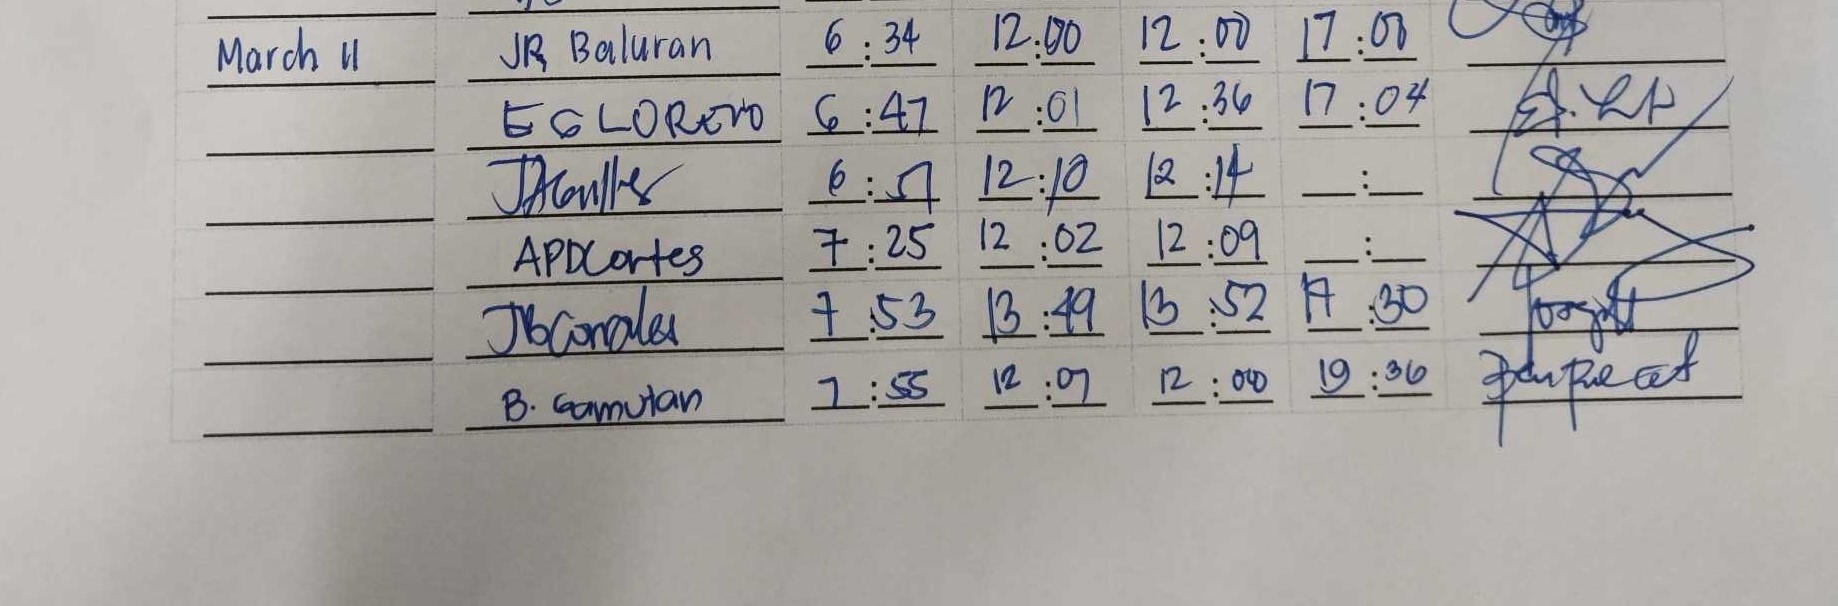 March 11 JR Baluran 6:34 12:00 12:00 17:00
EGLORETO 6:47 12:01 12:36 17:04
6:51 12:10 12:14 __:__
APDCortes 7:25 12:02 12:09 __:__
JBCorrales 7:53 13:49 13:52 17:30
B. Gamutan 7:55 12:07 12:00 19:36